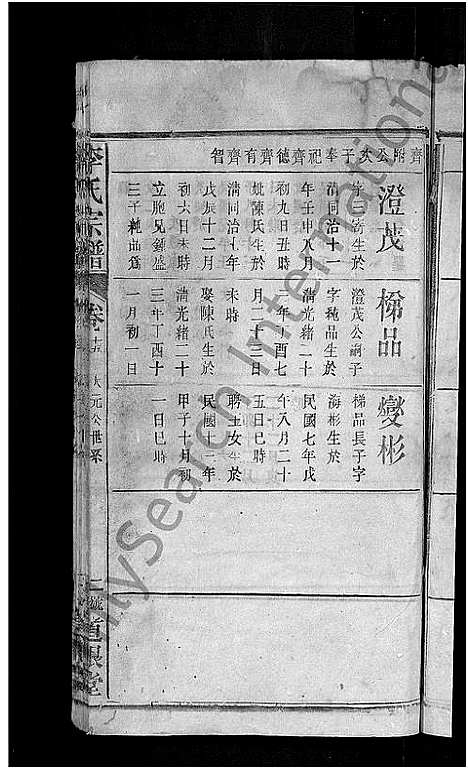 齊附公次子奉祀齊德齊有齊智
澄茂
生於
清同治十一
年壬申八月
初九日丑時
妣陳氏生於
清同治七年
戊辰十二月
初六日未時
立胞兄鍾盛
三子種品為
梯品
澄茂公嗣子
字種品生於
清光緒二十
三年丁酉七
月二十三日
未時
娶陳氏生於
清光緒二十
三年丁酉十
一月初一日
變彬
梯品長子字
海彬生於
民國七年戊
午八月二十
五日巳時
聘王女生於
民國十三年
甲子十月初
一日巳時
李氏宗譜
卷十五
次元公世系
道根堂
MySearch International